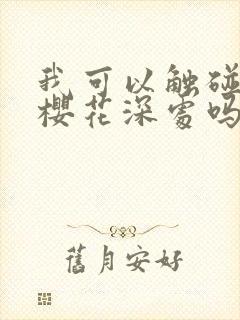 我可以触碰
樱花深处吗
舊月安好